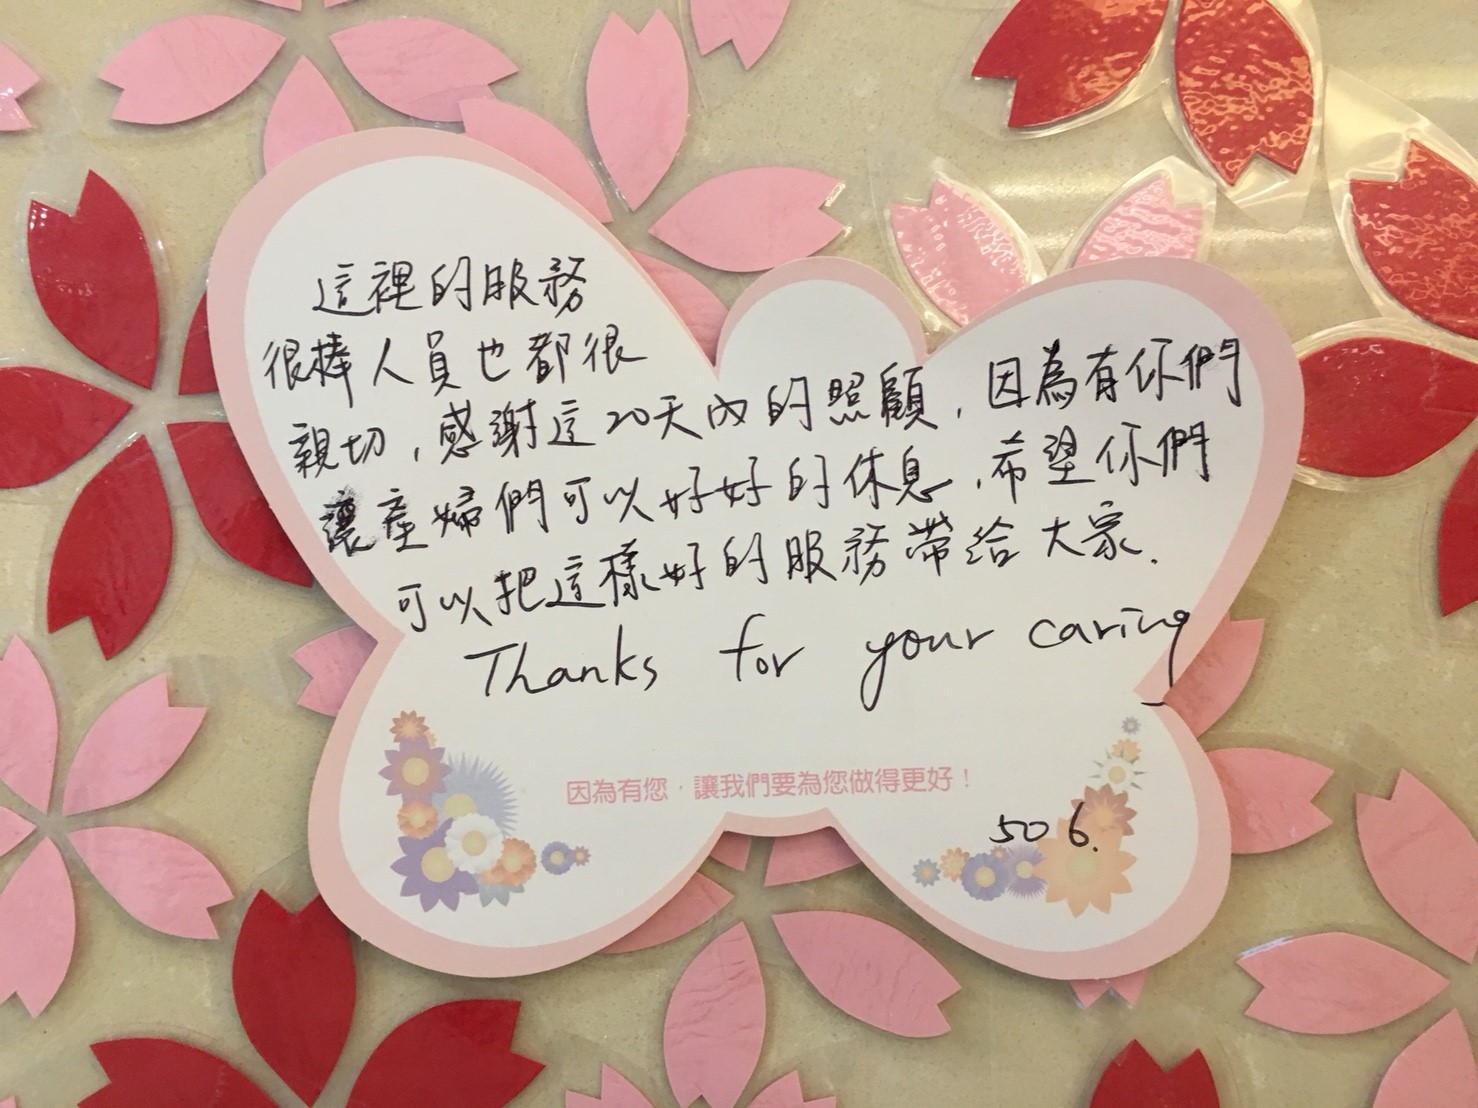 這裡的服務
很棒人員也都很
親切,感謝這20天內的照顧,因為有你們
讓產婦們可以好好的休息,希望你們
可以把這樣好的服務帶給大家.
Thanks for your caring
因為有您,讓我們要為您做得更好!
506.